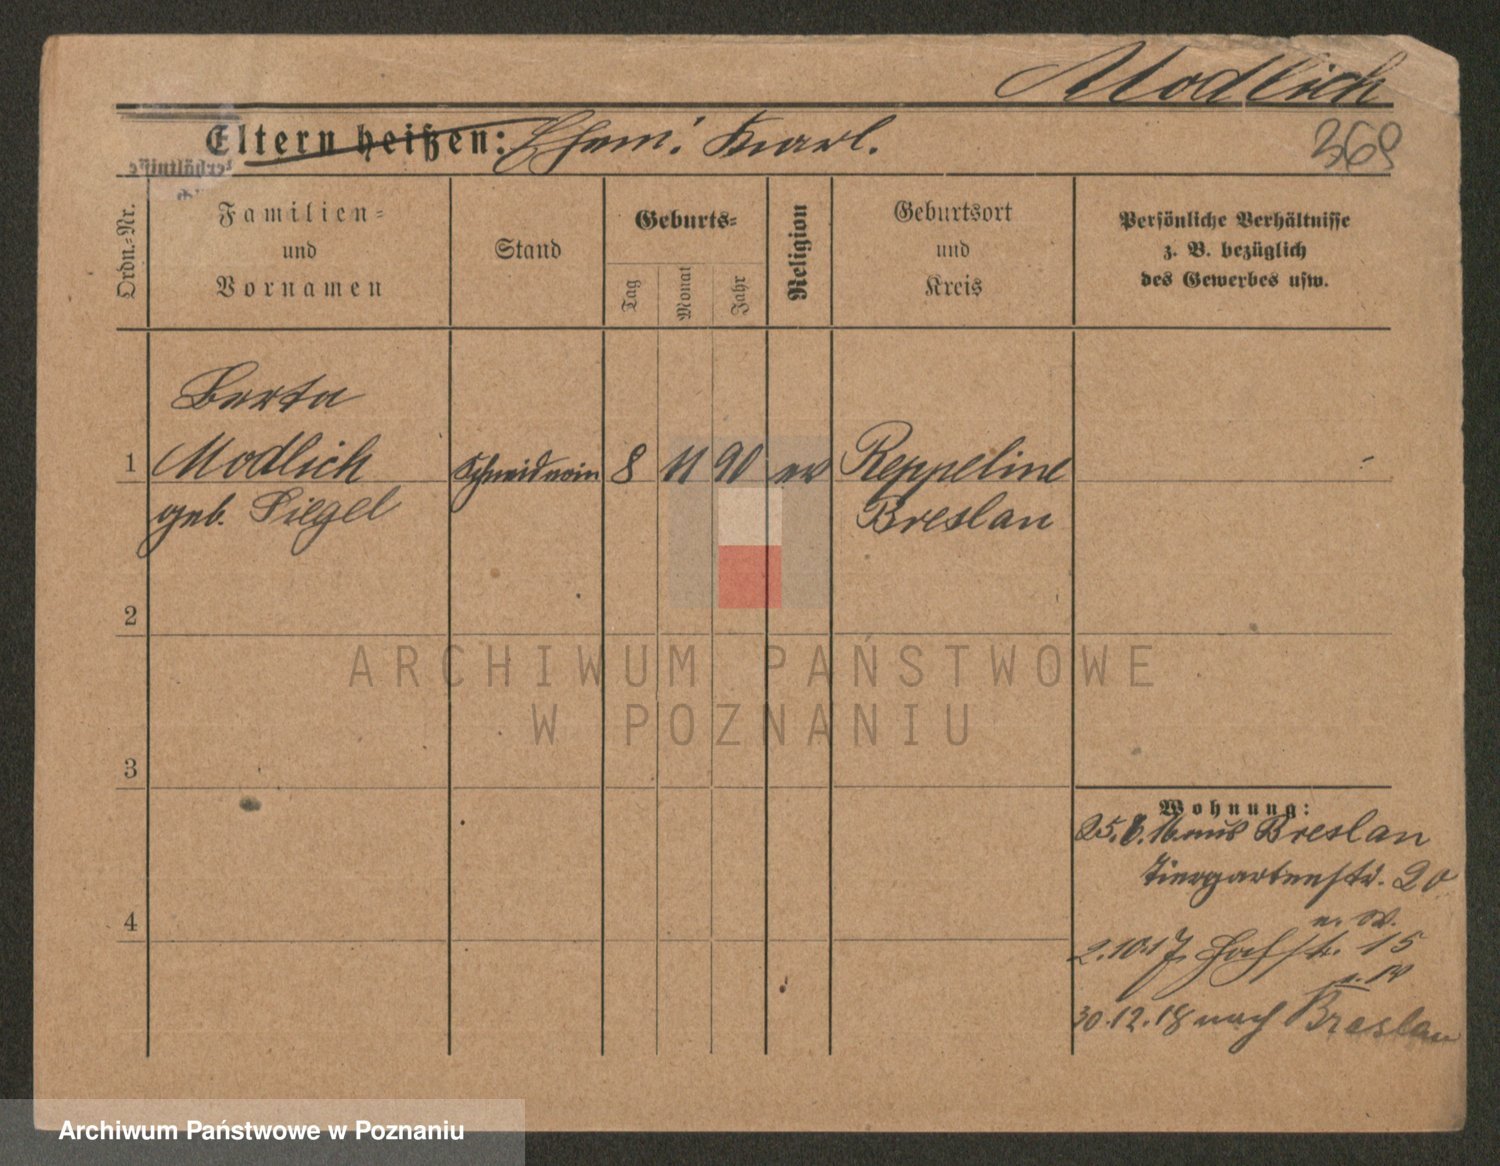 Modlich
Eltern heißen: Ehem. Karl.
369
Ordn.-Nr.
Familien-
und
Vornamen
Stand
Geburts-
Tag
Monat
Jahr
Religion
Geburtsort
und
Kreis
Persönliche Verhältnisse
z. B. bezüglich
des Gewerbes usw.
Berta
1 Modlich Schneiderin 8 11 90 ev Reppeline
geb. Siegel Breslau
2
3
4
Wohnung:
25. 6. 16 aus Breslau
Tiergartenstr. 20
2.10.17 15
30.12.18 nach Breslau
ARCHIWUM PAŃSTWOWE
W POZNANIU
Archiwum Państwowe w Poznaniu